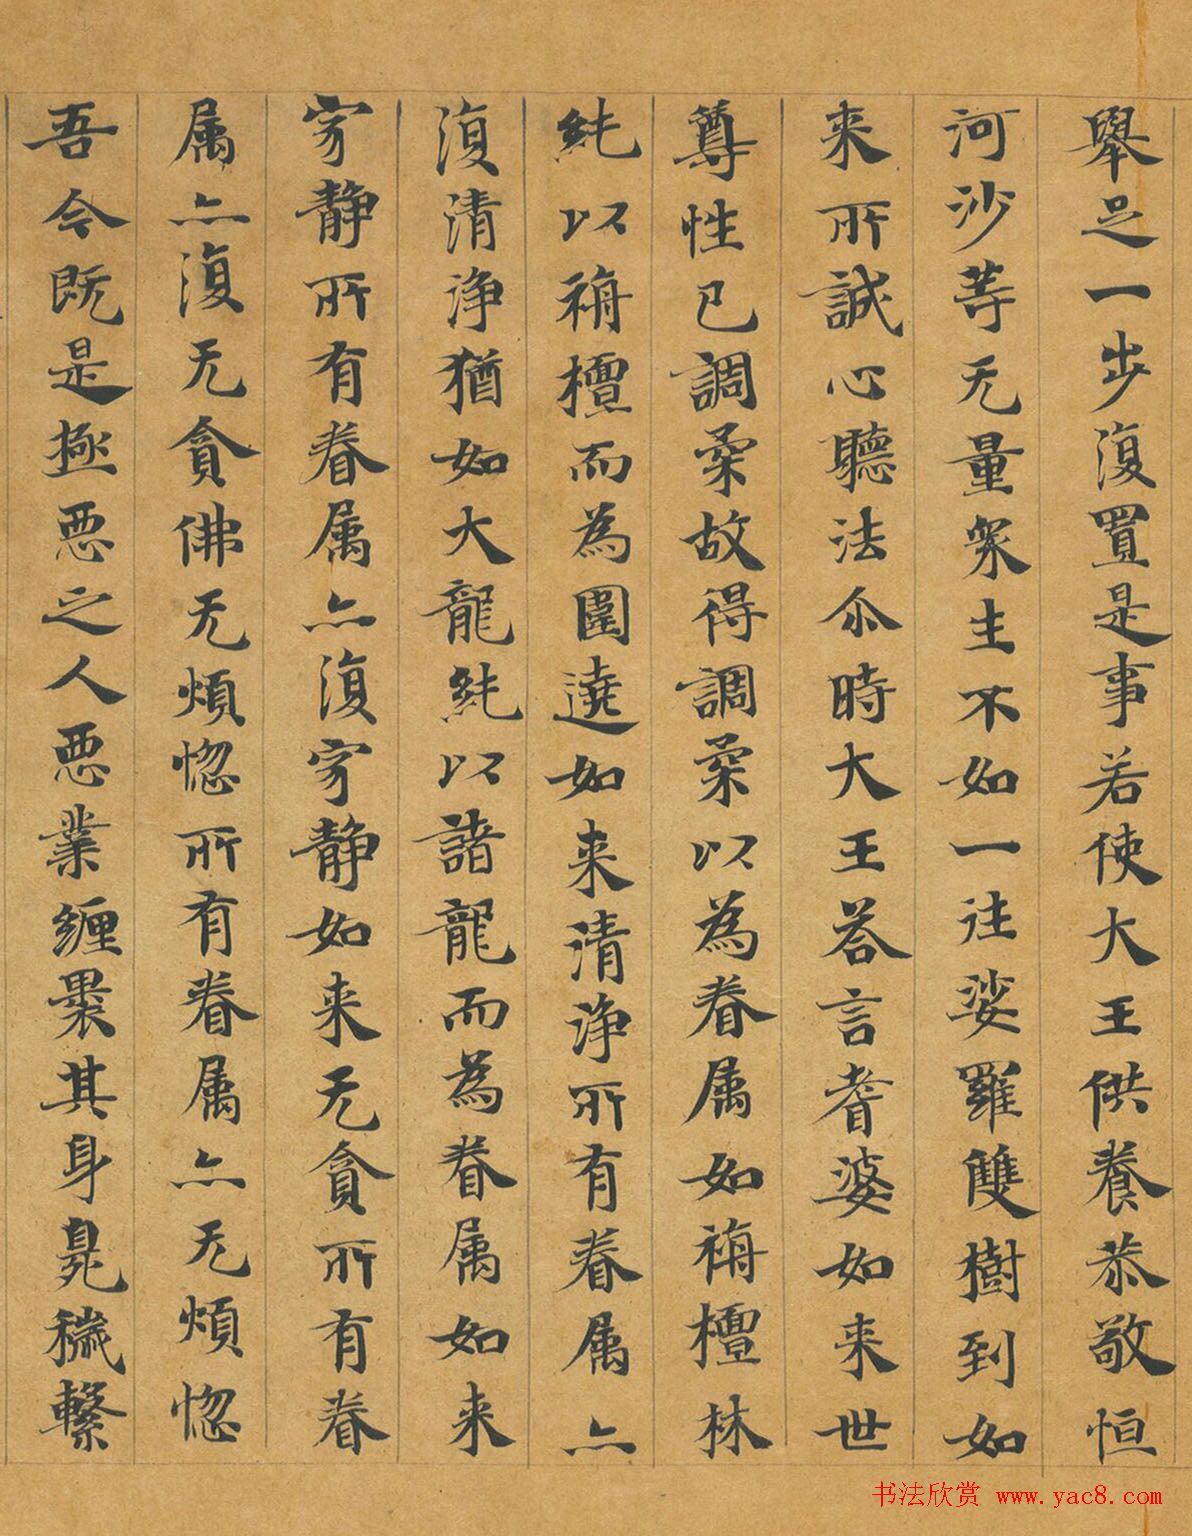 舉足一步復置是事若使大王供養恭敬恒
河沙等无量衆生不如一往娑羅雙樹到如
来所誠心聽法尒時大王荅言耆婆如来世
尊性已調柔故得調柔以為眷属如栴檀林
純以栴檀而為圍遶如来清淨所有眷属亦
復清淨猶如大龍純以諸龍而為眷属如来
寂静所有眷属亦復寂静如来无貪所有眷
属亦復无貪佛无煩惚所有眷属亦无煩惚
吾今既是極惡之人惡業缠裹其身臭穢繫
书法欣赏 www.yac8.com